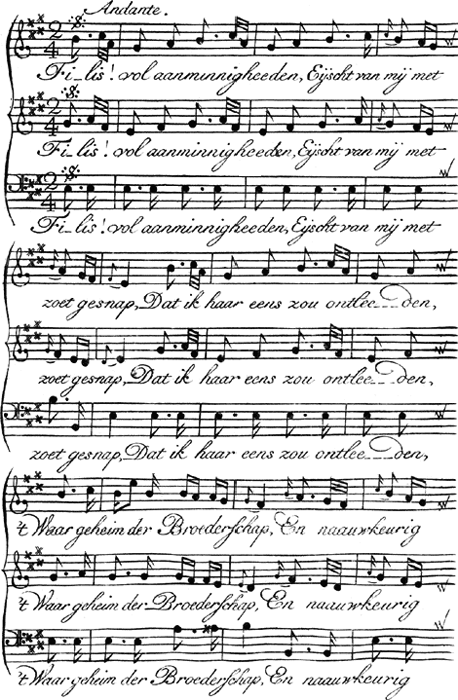 Andante.
Fi_lis! vol aanminnigheeden, Eÿscht van mÿ met
Fi_lis! vol aanminnigheeden, Eÿscht van mÿ met
Fi_lis! vol aanminnigheeden, Eÿscht van mÿ met
zoet gesnap, Dat ik haar eens zou ontlee__den,
zoet gesnap, Dat ik haar eens zou ontlee__den,
zoet gesnap, Dat ik haar eens zou ontlee__den,
't Waar geheim der Broederschap, En naauwkeurig
't Waar geheim der Broederschap, En naauwkeurig
't Waar geheim der Broederschap, En naauwkeurig